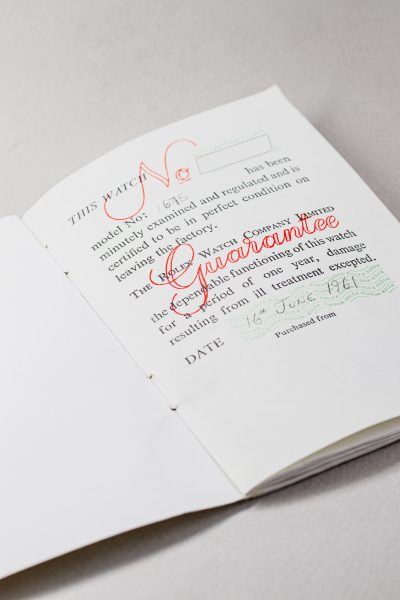 THIS WATCH No has been
model No: 1675
minutely examined and regulated and is
certified to be in perfect condition on
leaving the factory.
THE ROLEX WATCH COMPANY LIMITED
Guarantee
the dependable functioning of this watch
for a period of one year, damage
resulting from ill treatment excepted.
DATE 16th JUNE 1961
Purchased from